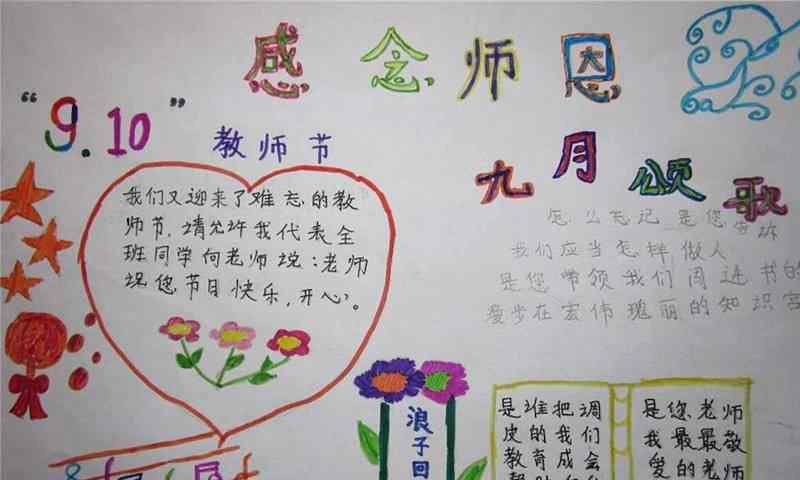 感念师恩
“9.10”
教师节
九月颂歌
我们又迎来了难忘的教
师节,请允许我代表全
班同学向老师说:老师
祝您节日快乐,开心。
怎么忘记是您告诉
我们应当怎样做人
是您带领我们闯进书的
爱步在宏伟瑰丽的知识宫
浪子回
是谁把调
皮的我们
教育成会
是您老师
我最最敬
爱的老师